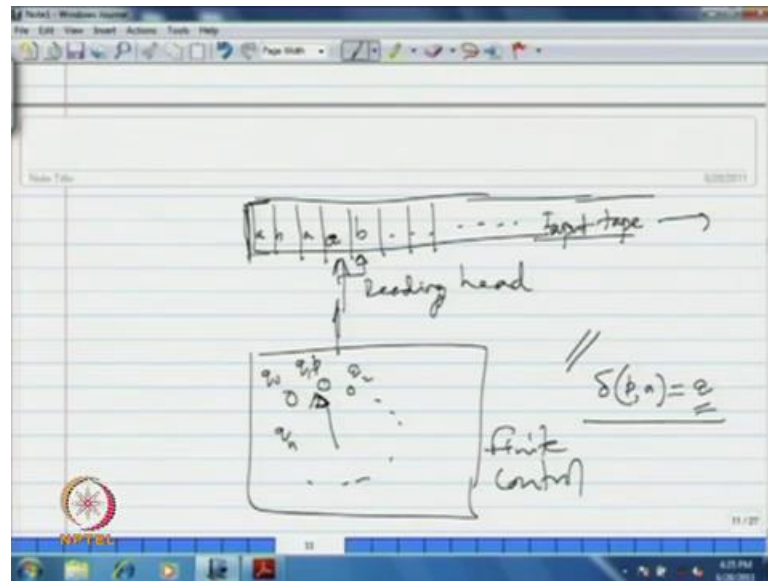 Note1 - Windows Journal
File Edit View Insert Actions Tools Help
Page Width
Note Title
6/20/2011
a b a a b . . . . . . . Input tape
Reading head
q0 q1 p q2
qn
δ(p, a) = q
finite
control
11 / 27
NPTEL
11
4:25 PM
6/20/2011